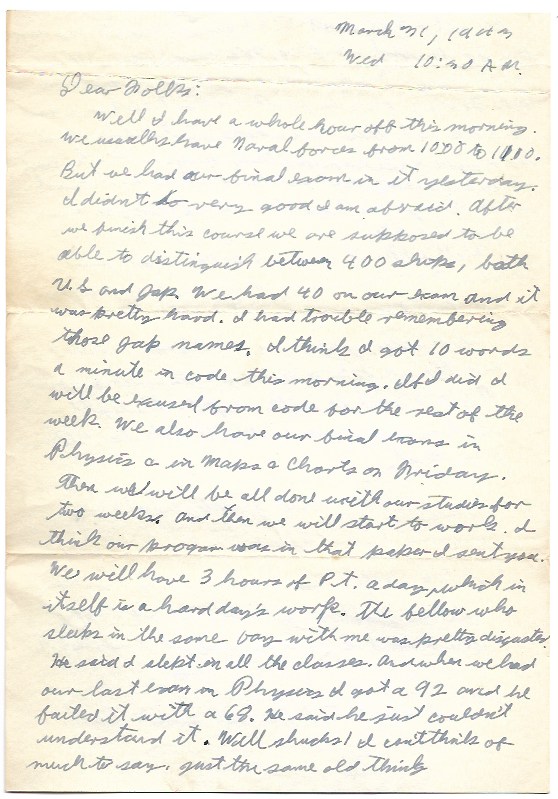 March 31, 1943
Wed 10:20 A.M.
Dear Folks:
Well I have a whole hour off this morning.
We usually have Naval forces from 1000 to 1100.
But we had our final exam in it yesterday.
I didn't do very good I am afraid. After
we finish this course we are supposed to be
able to distinguish between 400 ships, both
U.S and Jap. We had 40 on our exam and it
was pretty hard. I had trouble remembering
those Jap names. I think I got 10 words
a minute in code this morning. If I did I
will be excused from code for the rest of the
week. We also have our final exams in
Physics & in Maps & Charts on Friday.
Then we will be all done with our studies for
two weeks. And then we will start to work. I
think our program was in that paper I sent you.
We will have 3 hours of P.t. a day, which in
itself is a hard day's work. The fellow who
sleeps in the same bay with me was pretty disgusted.
He said I slept in all the classes. And when we had
our last exam in Physics I got a 92 and he
failed it with a 68. He said he just couldn't
understand it. Well shucks! I can't think of
much to say. Just the same old thing